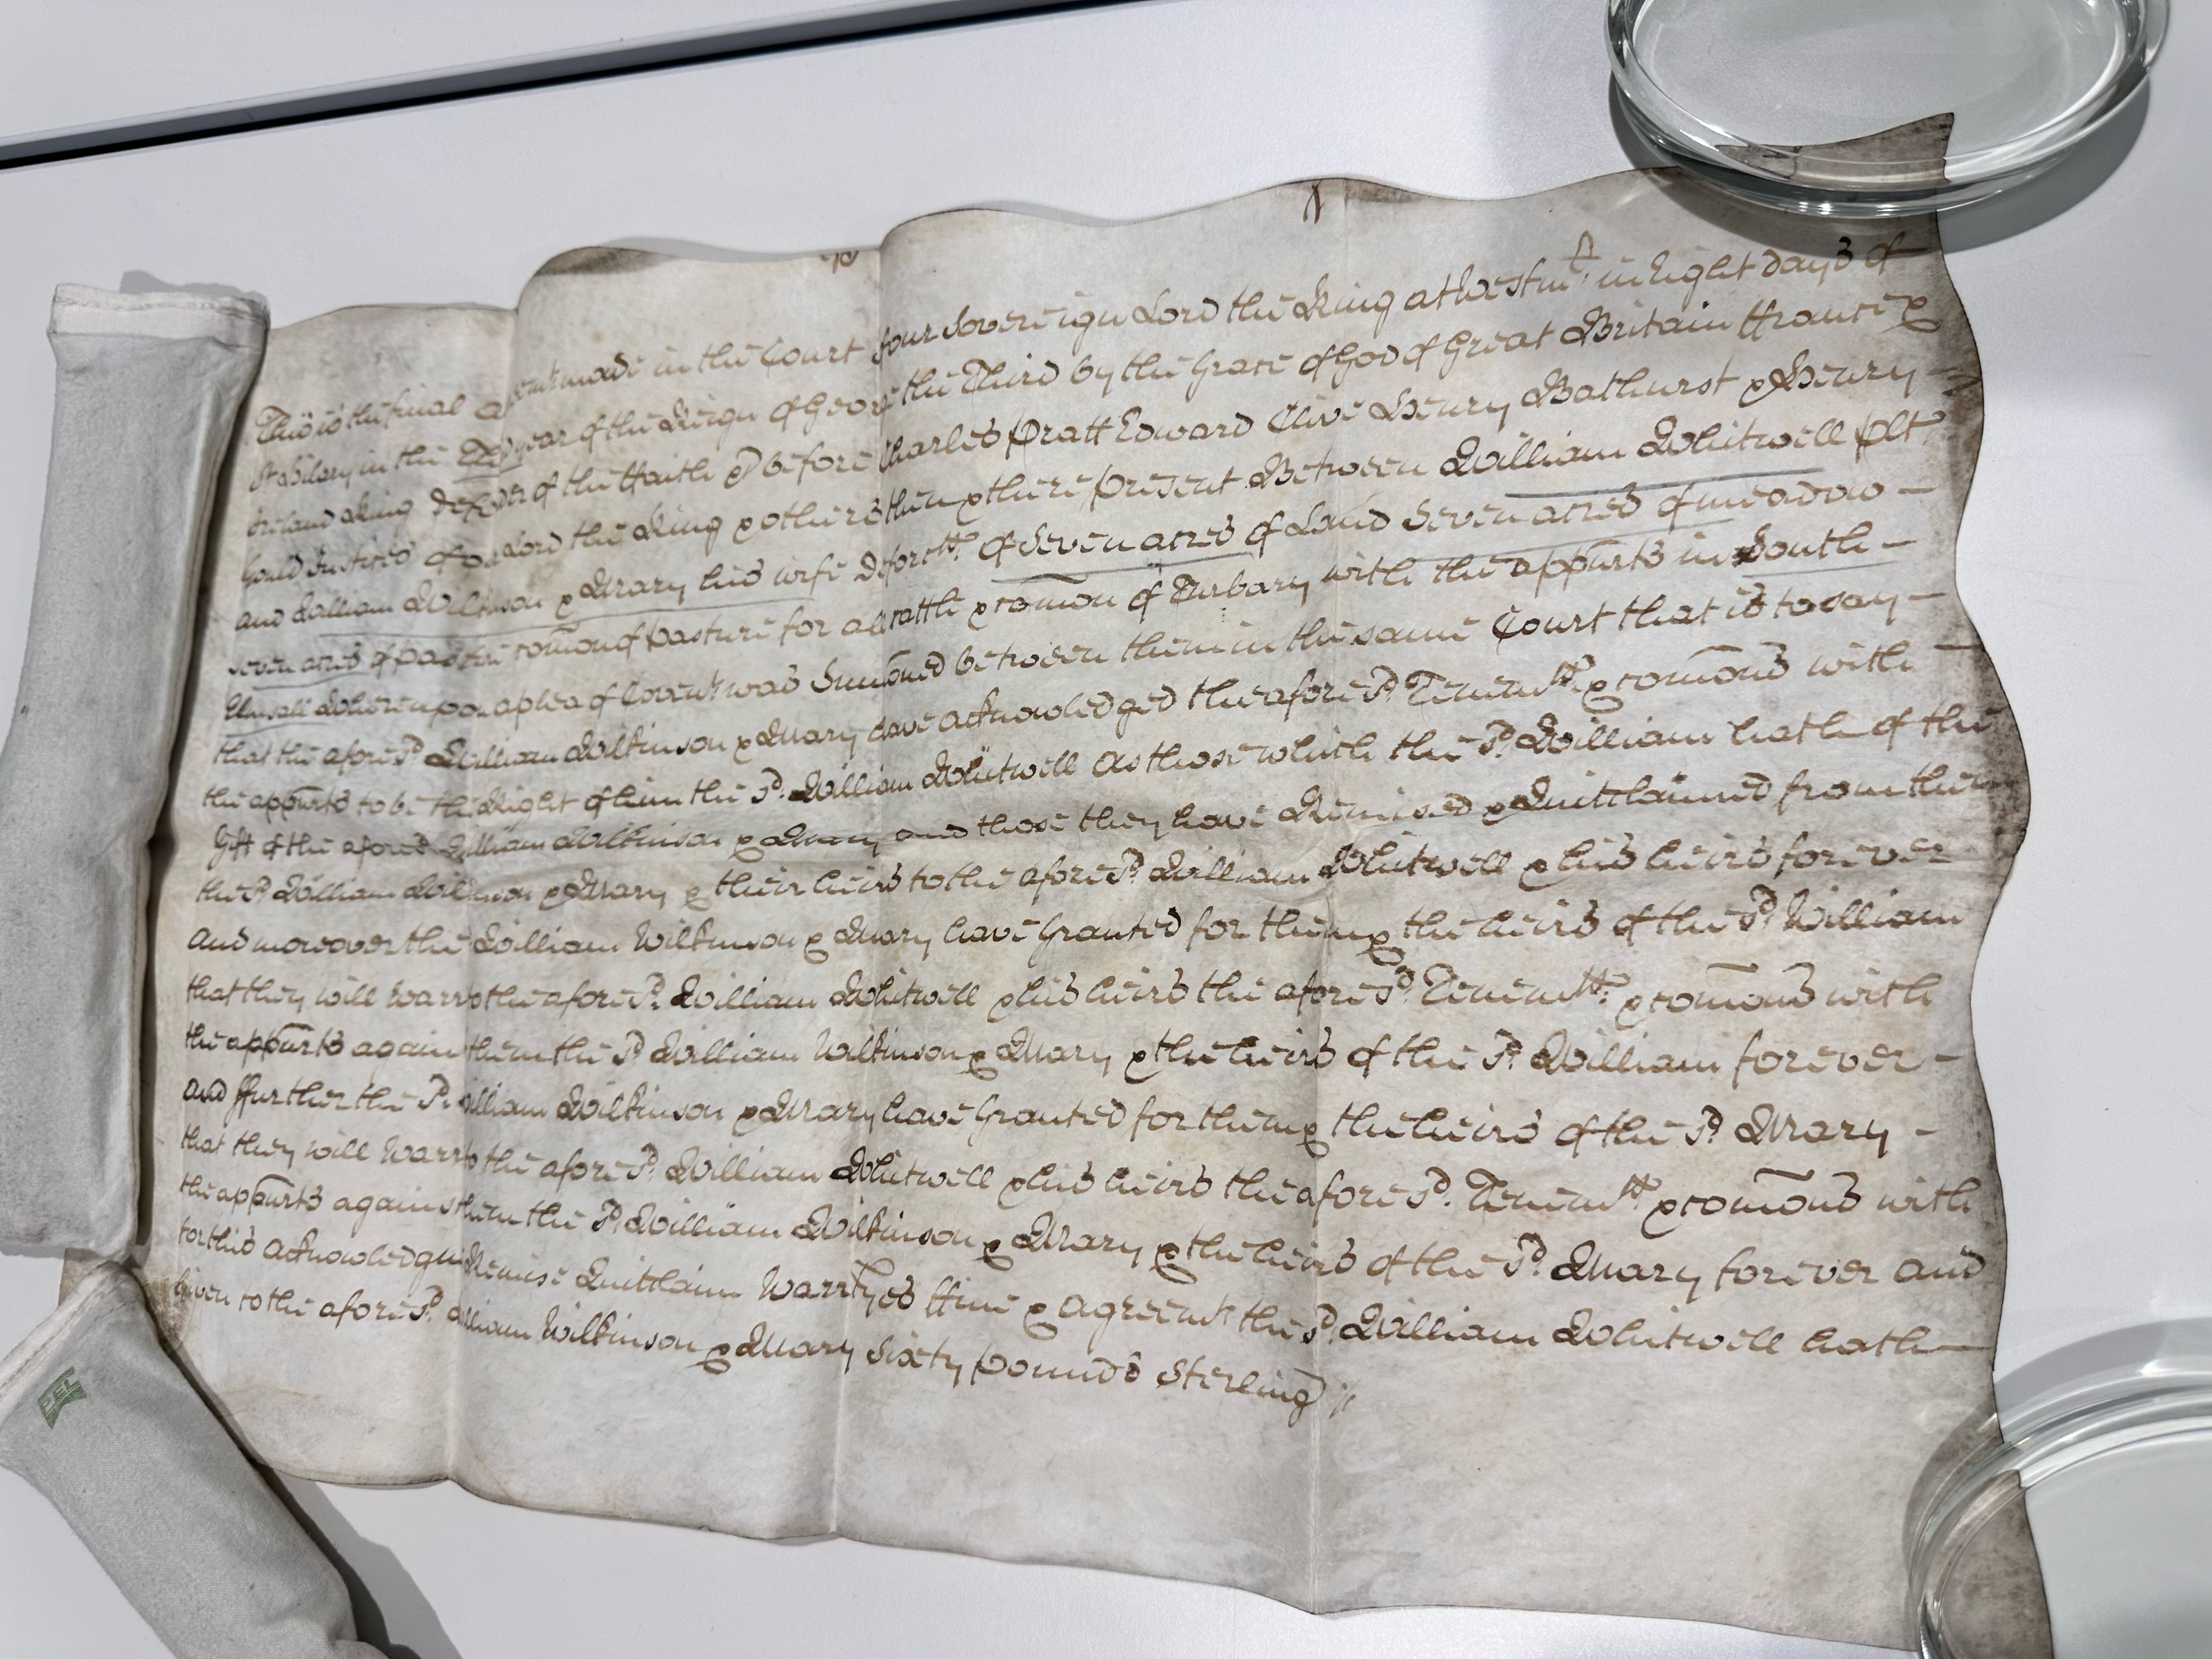 This is the final agreemt. made in the Court of our Sovereign Lord the King at Westmr. in Eight days of
St. Hilary in the year of the Reign of George the Third by the Grace of God of Great Britain ffrance &
Ireland King Defender of the ffaith &c before Charles Pratt Edward Clive Henry Bathurst & Henry
Gould Justices of our Lord the King & others then & there present Between William Whitwell plt
and William Wilkinson & Mary his wife deforctts. of Seven acres of Land Seven acres of meadow
Seven acres of pasture comon of pasture for all cattle & comon of Turbary with the appurts in South
Elmsall Whereupon a plea of Covent was Sumoned between them in the same Court that is to say
that the aforesd. William Wilkinson & Mary have acknowledged the aforesd. Tenemtts. & comons with
the appurts to be the Right of him the sd. William Whitwell As those which the sd. William hath of the
Gift of the aforesd. William Wilkinson & Mary and those they have Remised & Quitclaimed from them
the sd. William Wilkinson & Mary & their heirs to the aforesd. William Whitwell & his heirs for ever
And moreover the William Wilkinson & Mary have Granted for them & the heirs of the sd. William
that they will Warrt the aforesd. William Whitwell & his heirs the aforesd. Tenemtts. & comons with
the appurts against them the sd. William Wilkinson & Mary & the heirs of the sd. William for ever
And ffurther the sd. William Wilkinson & Mary have Granted for them & the heirs of the sd. Mary
that they will Warrt to the aforesd. William Whitwell & his heirs the aforesd. Tenemtts. & comons with
the appurts against them the sd. William Wilkinson & Mary & the heirs of the sd. Mary for ever and
for this Acknowledgmt Remise Quitclaim Warrtyes ffine & agreemt. the sd. William Whitwell hath
Given to the aforesd. William Wilkinson & Mary Sixty pounds Sterling